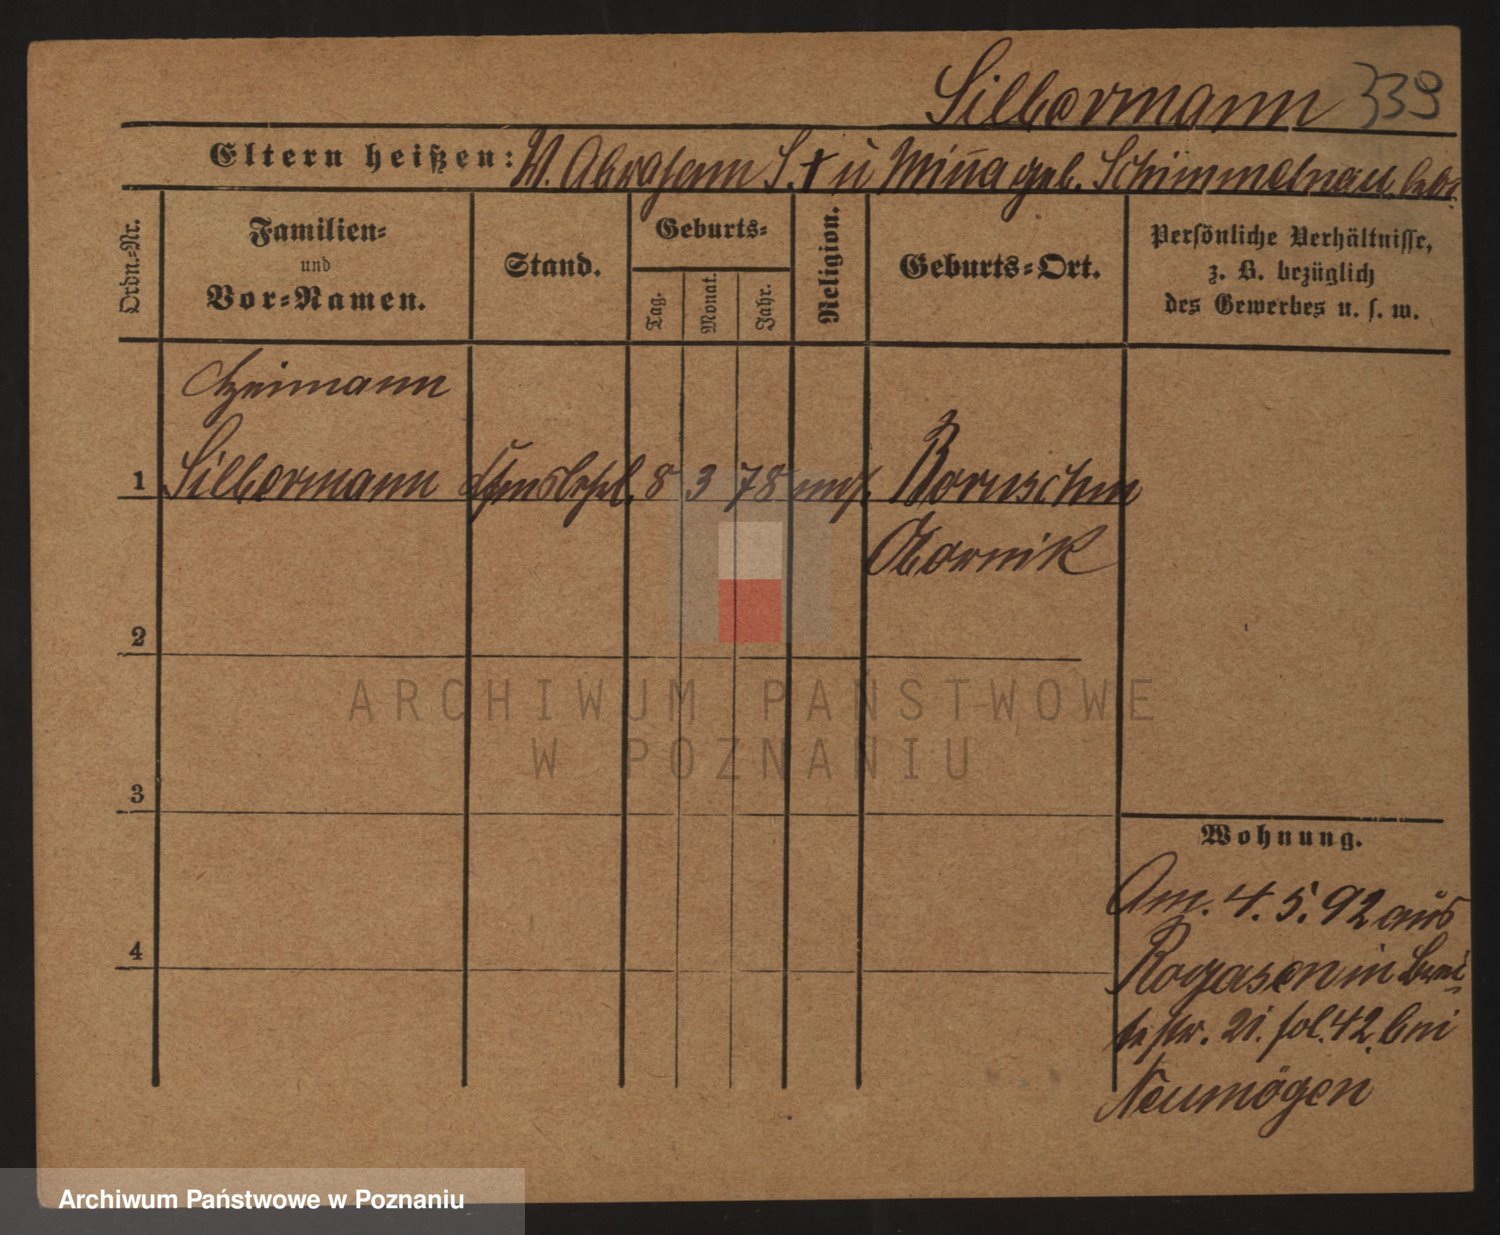 Silbermann 339
Eltern heißen: W. Abraham S. † ü Miña geb. Schimmelnau
Ordn.-Nr.
Familien=
und
Vor=Namen.
Stand.
Geburts=
Tag.
Monat.
Jahr.
Religion.
Geburts=Ort.
Persönliche Verhältnisse,
z. B. bezüglich
des Gewerbes u. s. w.
Heimann
1 Silbermann 8 3 78 mos. Boruschin
Obornik
2
3
4
Wohnung.
Am. 4. 5. 92 aus
Rogasen in Brei
testr. 21. fol. 42. bei
Neumögen
ARCHIWUM PAŃSTWOWE
W POZNANIU
Archiwum Państwowe w Poznaniu